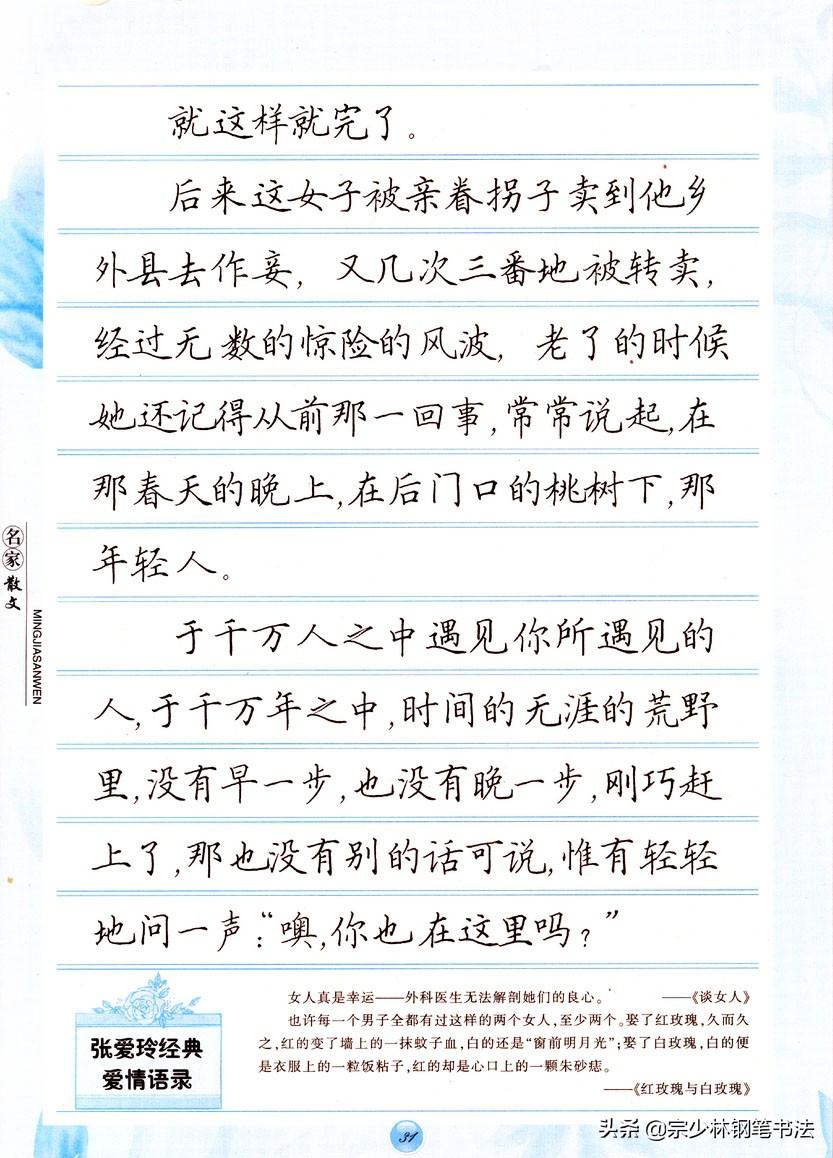 就这样就完了。
后来这女子被亲眷拐子卖到他乡
外县去作妾，又几次三番地被转卖，
经过无数的惊险的风波，老了的时候
她还记得从前那一回事，常常说起，在
那春天的晚上，在后门口的桃树下，那
年轻人。
于千万人之中遇见你所遇见的
人，于千万年之中，时间的无涯的荒野
里，没有早一步，也没有晚一步，刚巧赶
上了，那也没有别的话可说，惟有轻轻
地问一声：“噢，你也在这里吗？”
名家散文
MINGJIASANWEN
张爱玲经典
爱情语录
女人真是幸运——外科医生无法解剖她们的良心。 ——《谈女人》
也许每一个男子全都有过这样的两个女人，至少两个。娶了红玫瑰，久而久
之，红的变了墙上的一抹蚊子血，白的还是“窗前明月光”；娶了白玫瑰，白的便
是衣服上的一粒饭粘子，红的却是心口上的一颗朱砂痣。
——《红玫瑰与白玫瑰》
31
头条 @宗少林钢笔书法